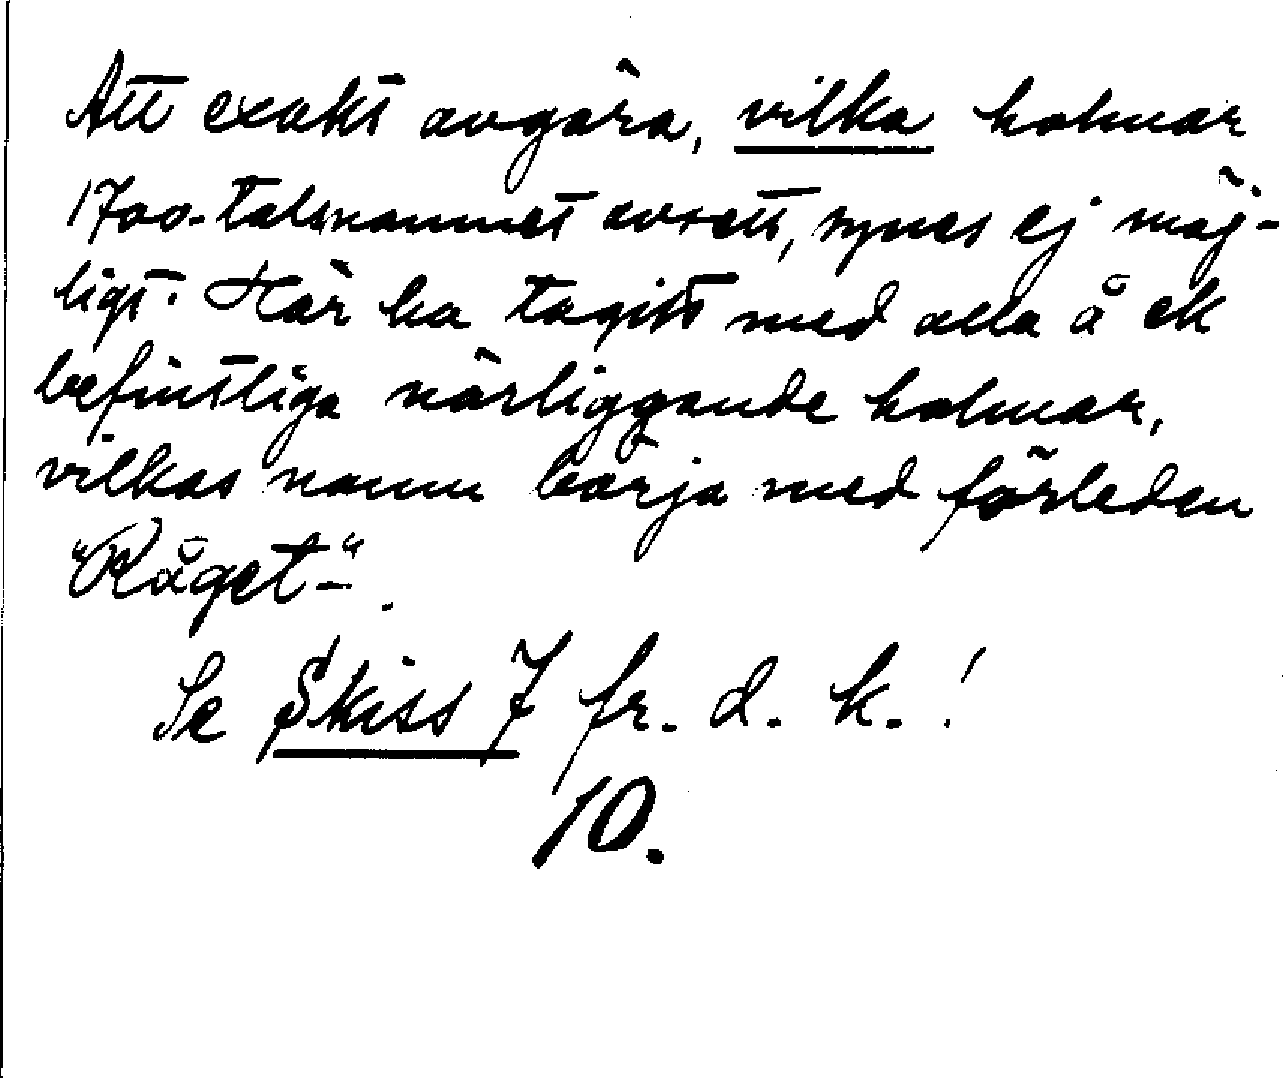 Att exakt avgöra, vilka holmar
1700-talsnamnet avsett, synes ej möj-
ligt. Här ha tagits med alla å ek
befintliga närliggande holmar,
vilkas namn börja med förleden
"Råget-".
Se Skiss 7 fr. d. k.!
10.